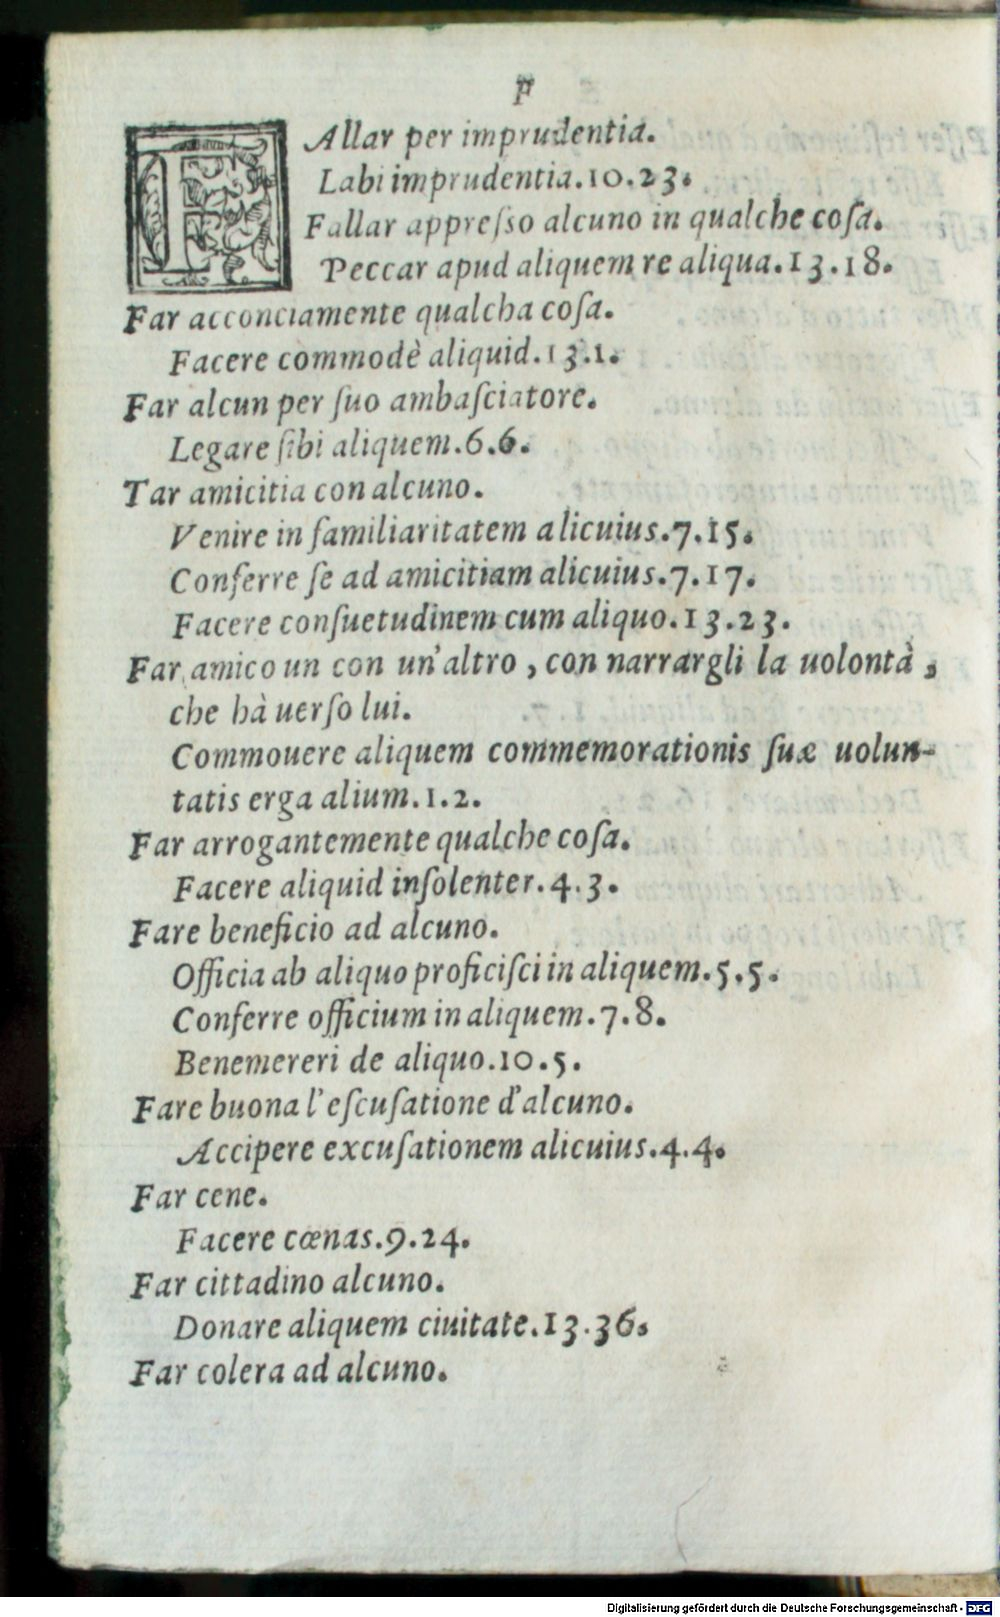 F
FAllar per imprudentia.
Labi imprudentia.10.23.
Fallar appreſso alcuno in qualche coſa.
Peccar apud aliquem re aliqua.13.18.
Far acconciamente qualcha coſa.
Facere commodè aliquid.13.1.
Far alcun per ſuo ambaſciatore.
Legare ſibi aliquem.6.6.
Tar amicitia con alcuno.
Venire in familiaritatem alicuius.7.15.
Conferre ſe ad amicitiam alicuius.7.17.
Facere conſuetudinem cum aliquo.13.23.
Far amico un con un'altro, con narrargli la uolontà,
che hà uerſo lui.
Commouere aliquem commemorationis ſuæ uolun-
tatis erga alium.1.2.
Far arrogantemente qualche coſa.
Facere aliquid inſolenter.4.3.
Fare beneficio ad alcuno.
Officia ab aliquo proficiſci in aliquem.5.5.
Conferre officium in aliquem.7.8.
Benemereri de aliquo.10.5.
Fare buona l'eſcuſatione d'alcuno.
Accipere excuſationem alicuius.4.4.
Far cene.
Facere cœnas.9.24.
Far cittadino alcuno.
Donare aliquem ciuitate.13.36.
Far colera ad alcuno.
Digitalisierung gefördert durch die Deutsche Forschungsgemeinschaft - DFG